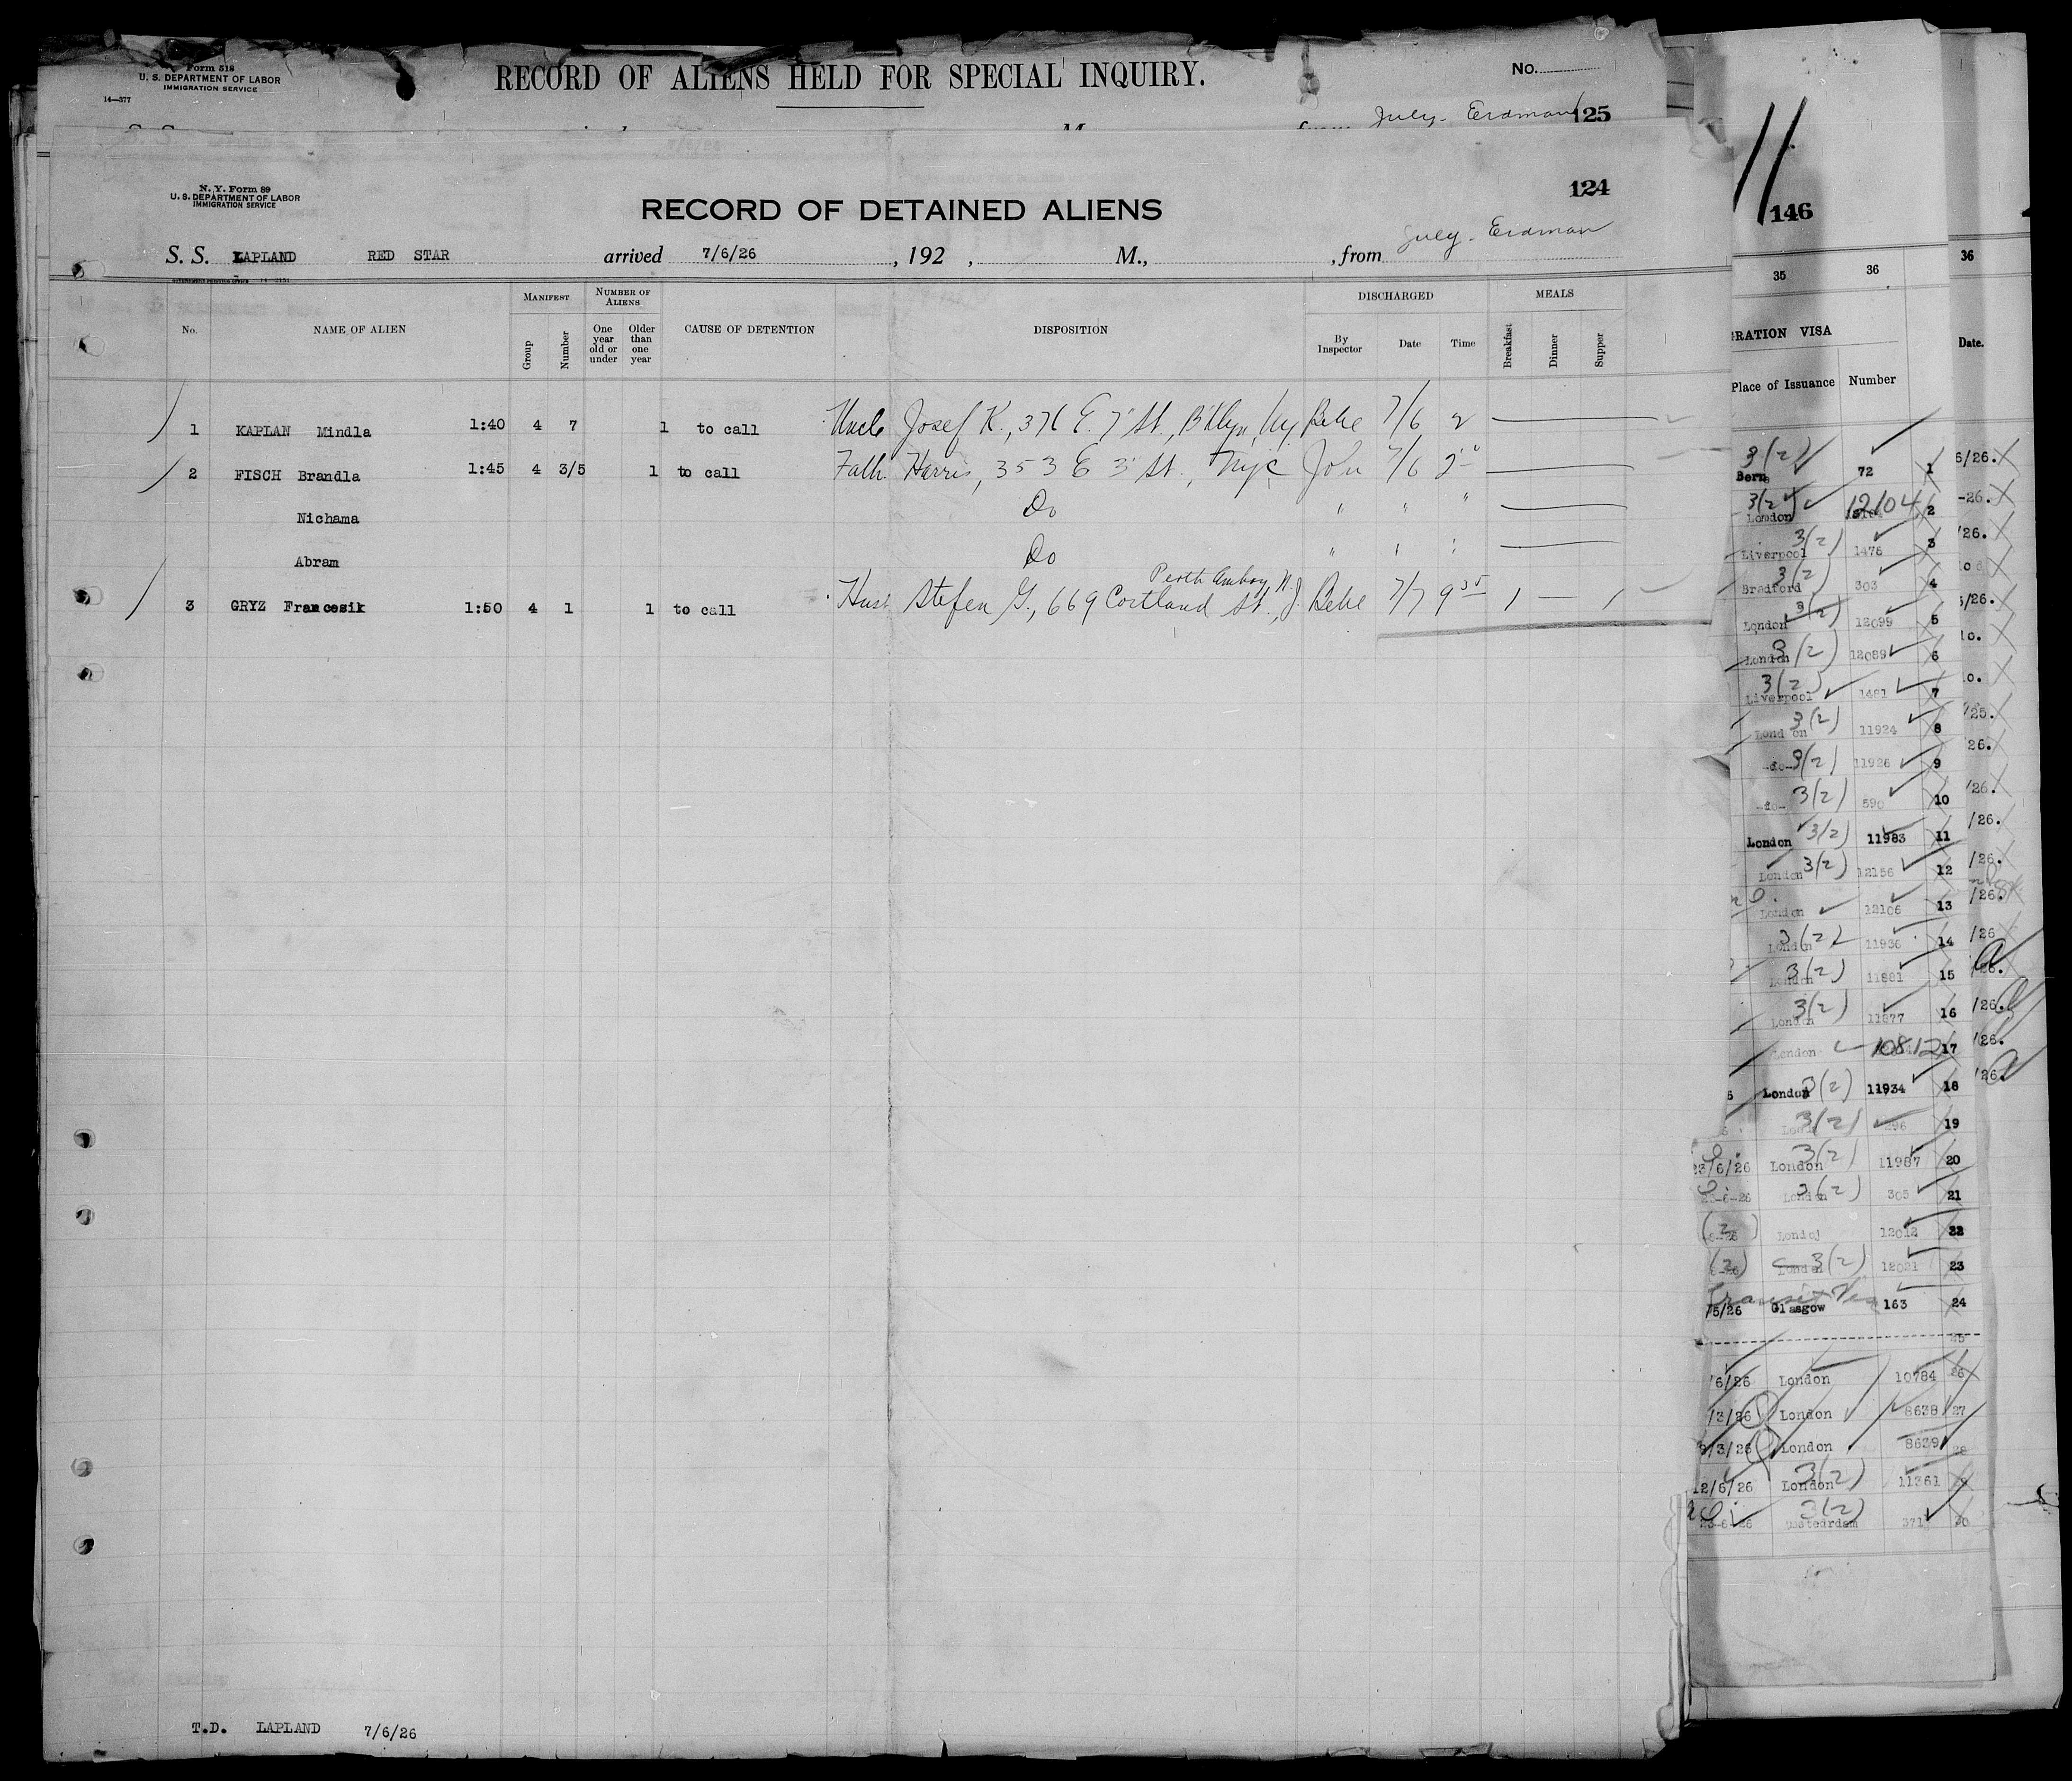 Form 518
U. S. DEPARTMENT OF LABOR
IMMIGRATION SERVICE
14—377
RECORD OF ALIENS HELD FOR SPECIAL INQUIRY.
No.
July. Erdman
125
N. Y. Form 89
U. S. DEPARTMENT OF LABOR
IMMIGRATION SERVICE
124
RECORD OF DETAINED ALIENS
July. Erdman
S. S. LAPLAND RED STAR arrived 7/6/26, 192 , M., , from
No. NAME OF ALIEN MANIFEST Group Number NUMBER OF ALIENS One year old or under Older than one year CAUSE OF DETENTION DISPOSITION DISCHARGED By Inspector Date Time MEALS Breakfast Dinner Supper
1 KAPLAN Mindla 1:40 4 7 1 to call Uncle Josef K., 376 E. 7" St., Bklyn, Ny 7/6 2
2 FISCH Brandla 1:45 4 3/5 1 to call Fath. Harris, 353 E 3" St., Nyc John 7/6 2
Nichama Do " " "
Abram Do " " "
Perth Amboy N.J.
3 GRYZ Francesik 1:50 4 1 1 to call Husb Stefen G., 669 Cortland St., 7/7 9 35 1 — 1
T.D. LAPLAND 7/6/26
146
35 36
GRATION VISA
Place of Issuance Number
3(2)
Bern 72 1
3(2)
London 12104 2
3(2)
Liverpool 1478 3
3(2)
Bradford 303 4
3(2)
London 12099 5
London 3(2) 12089 6
3(2)
Liverpool 1481 7
3(2)
London 11924 8
-do- 3(2) 11926 9
-do- 3(2) 590 10
London 3(2) 11983 11
London 3(2) 12156 12
London 12106 13
London 3(2) 11936 14
London 3(2) 11881 15
London 3(2) 11877 16
London 10812 17
London 3(2) 11934 18
3(2) 296 19
23/6/26 London 3(2) 11987 20
23-6-26 London 3(2) 305 21
12012 22
London 3(2) 12021 23
Transit Visa
/5/26 Glasgow 163 24
25
/6/26 London 10784 26
/3/26 London 8638 27
/3/26 London 8639 28
12/6/26 London 3(2) 11361 29
23-6-26 3(2) 371 30
36
Date.
6/26.
-26.
/26.
/26.
/25.
26.
/26.
/26.
/26.
/26.
/26
/26.
/26.
/26.